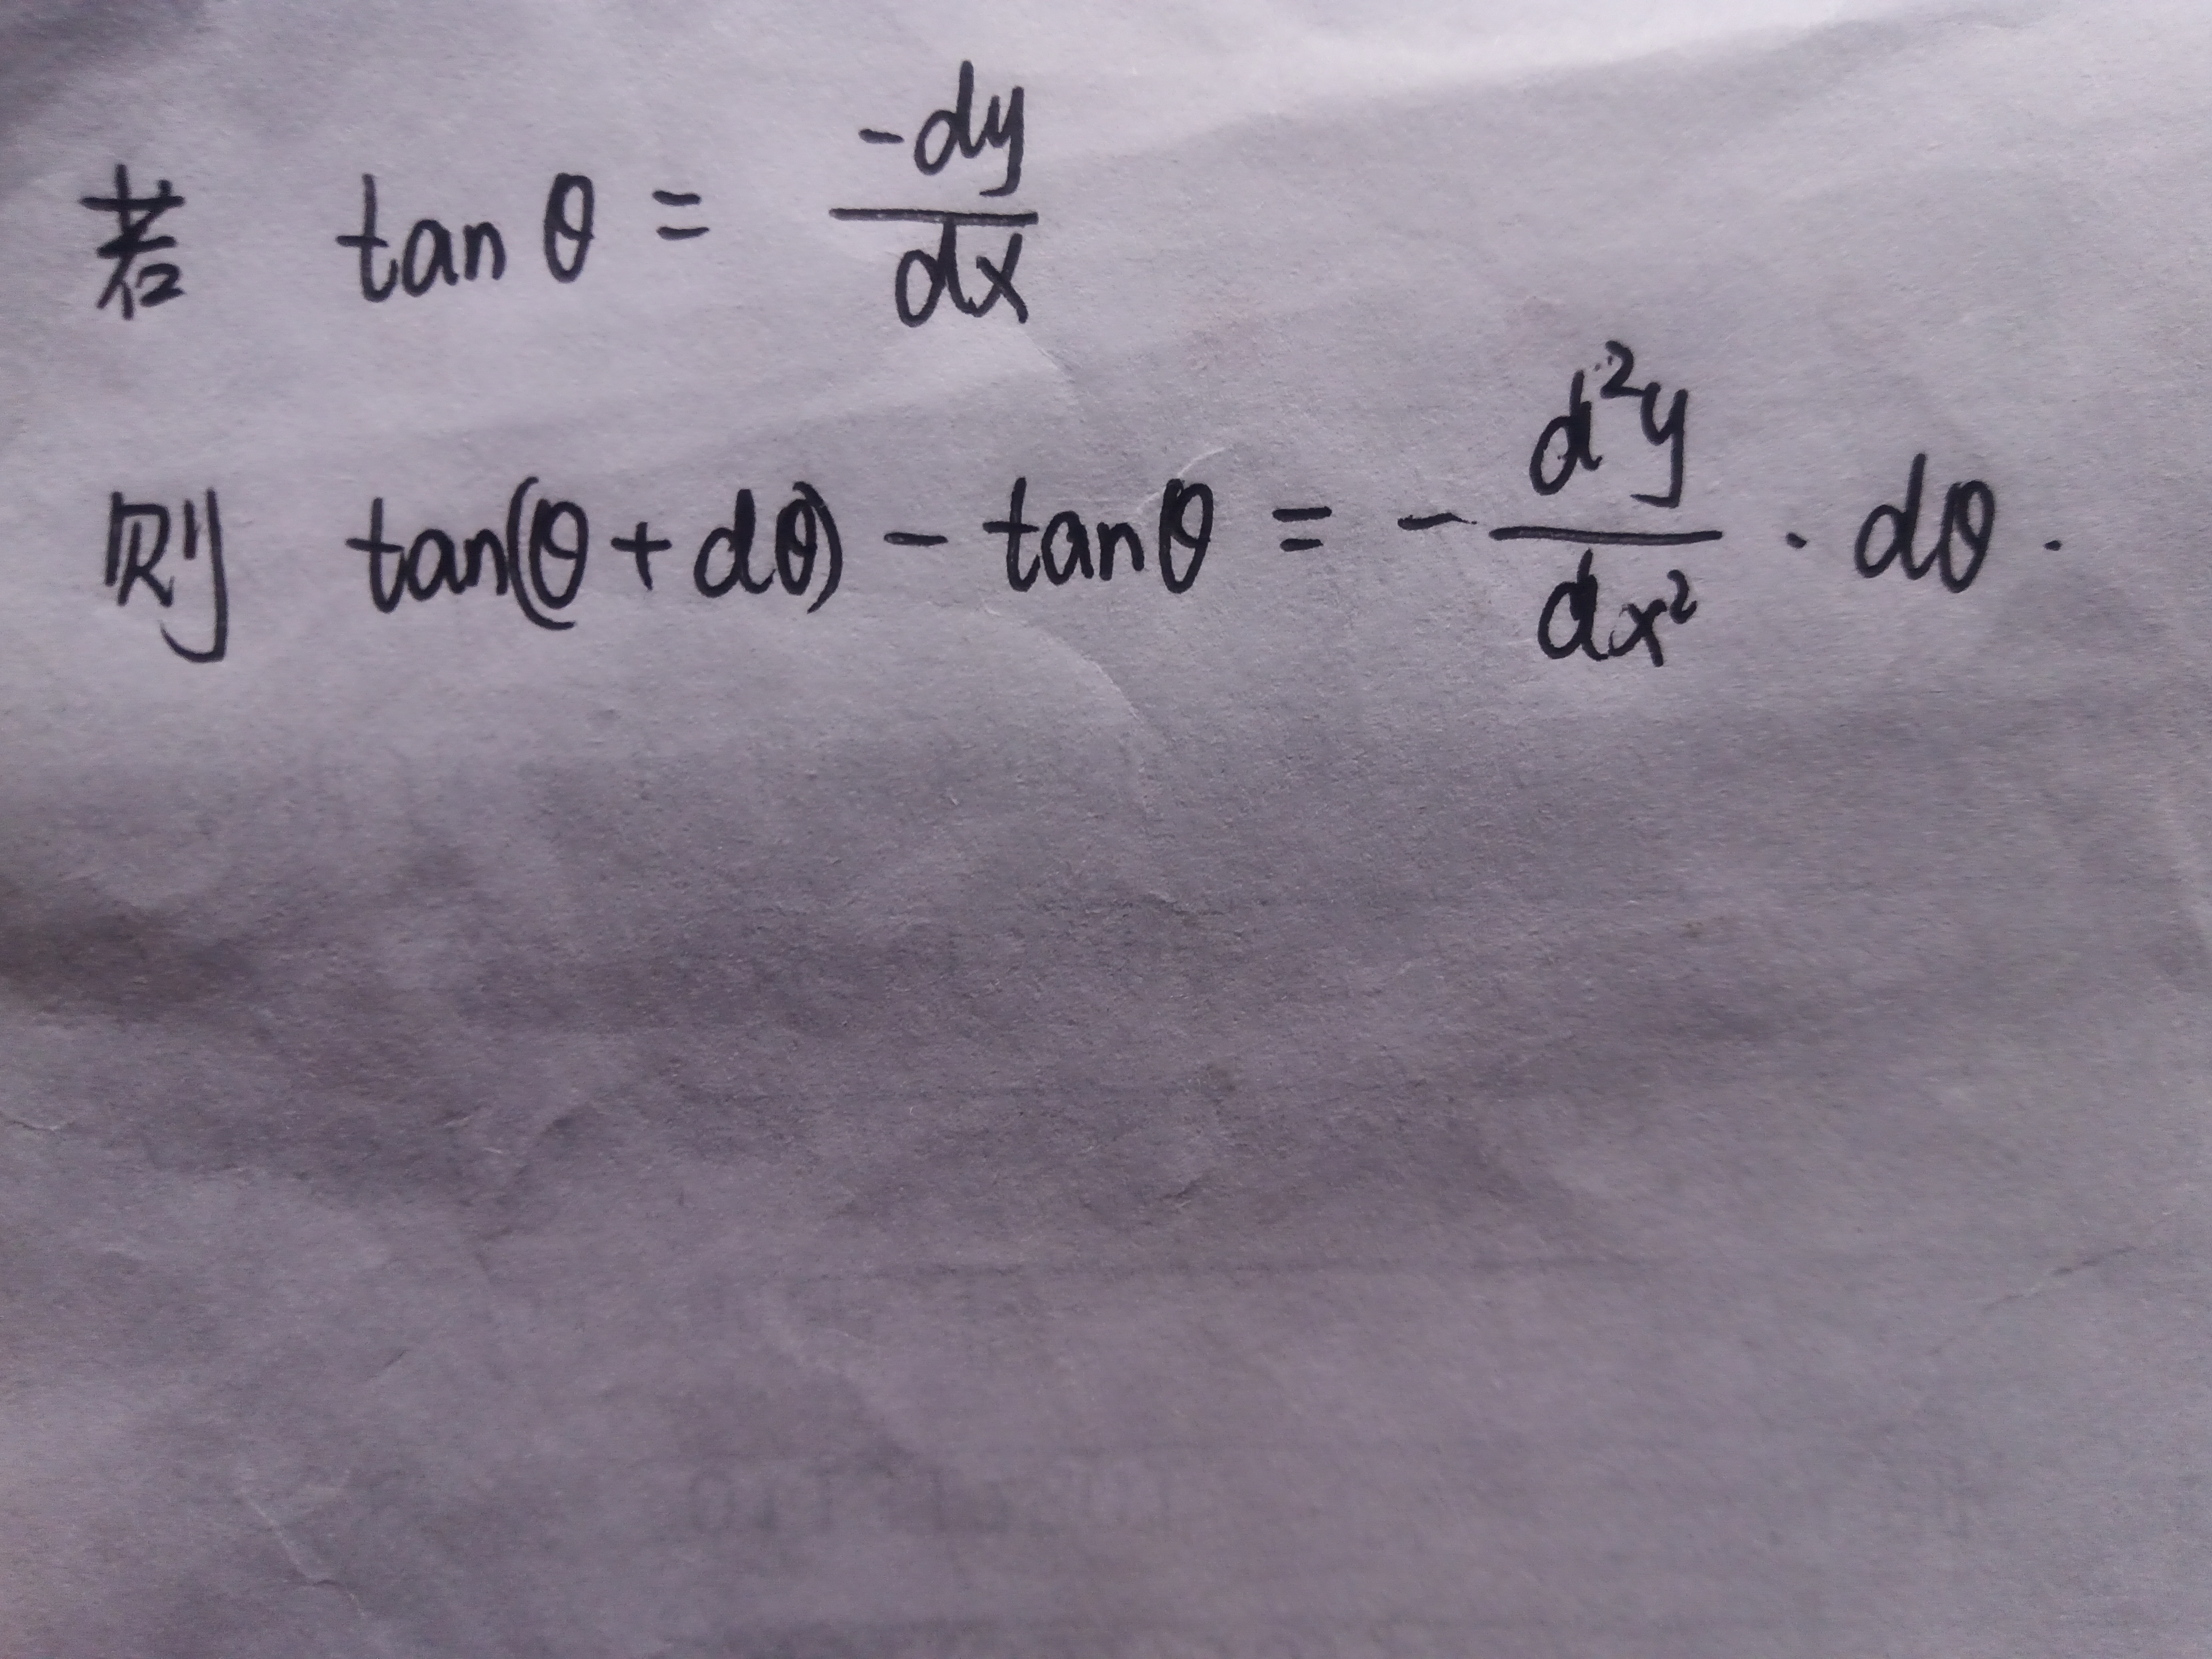 若 tan θ = -dy/dx
则 tan(θ + dθ) - tanθ = - d²y/dx² · dθ.